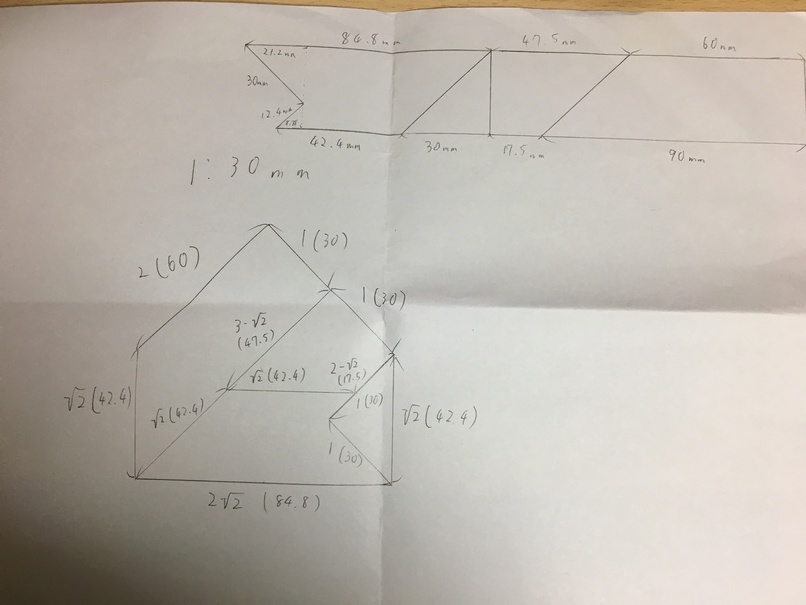 84.8mm
47.5mm
60mm
21.2mm
30mm
12.4mm
42.4mm
30mm
17.5mm
90mm
1:30mm
2(60)
1(30)
1(30)
3-√2
(47.5)
2-√2
(17.5)
√2(42.4)
1(30)
√2(42.4)
√2(42.4)
√2(42.4)
1(30)
2√2 (84.8)